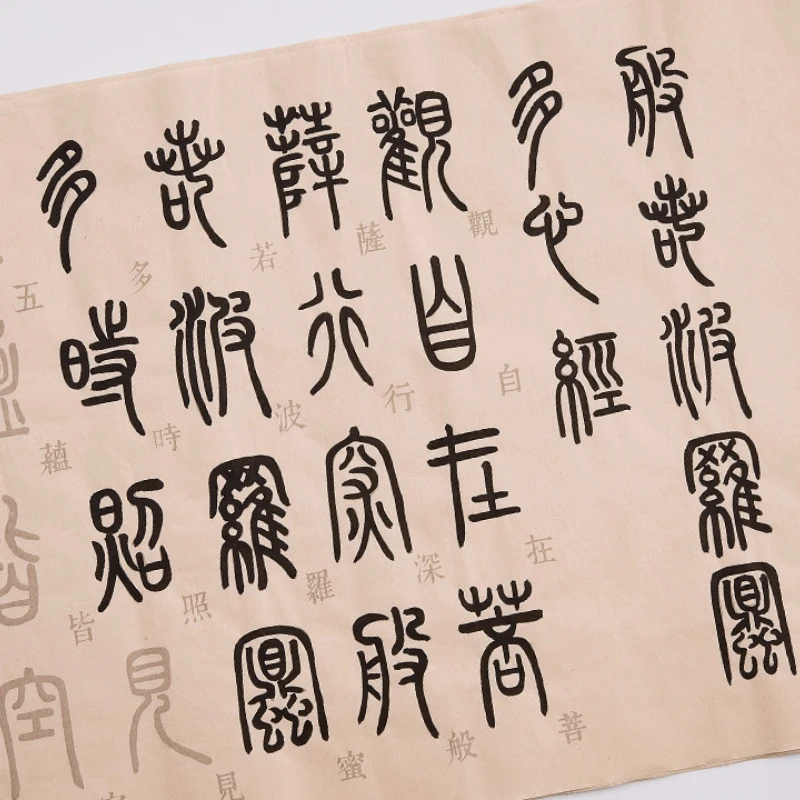 般若波羅蜜
多心經
觀自在菩
觀自在菩
薩行深般
薩行深般
若波羅蜜
若波羅蜜
多時照見
多時照見
蘊皆空
五蘊皆